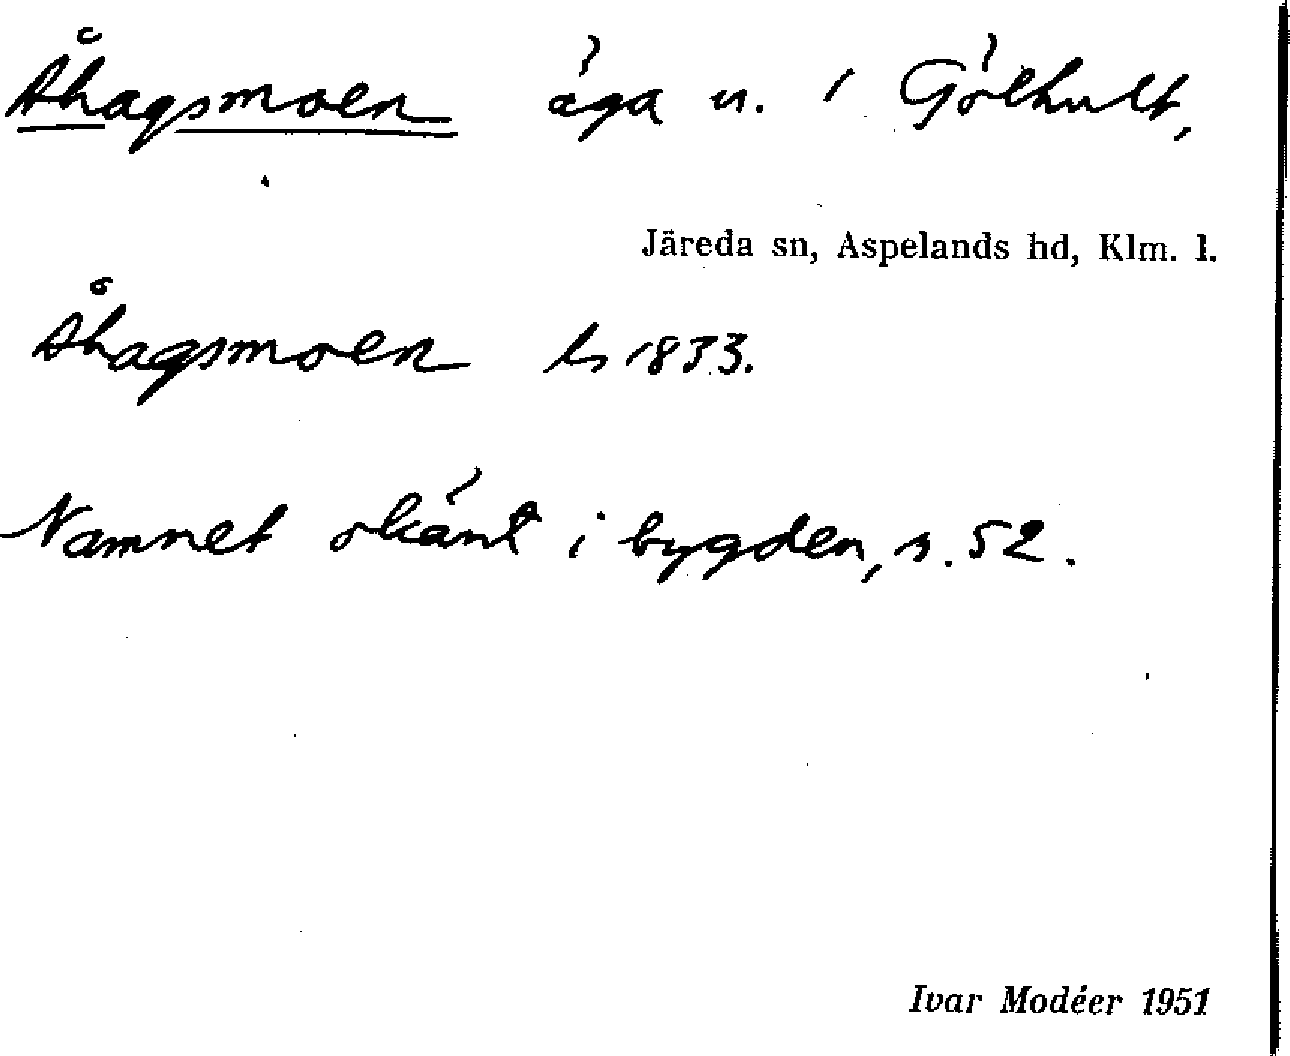 Åhagsmoen äga u. i Gölhult,
Järeda sn, Aspelands hd, Klm. l.
Åhagsmoen ls 1833.
Namnet okänt i bygden, s. 52.
Ivar Modéer 1951